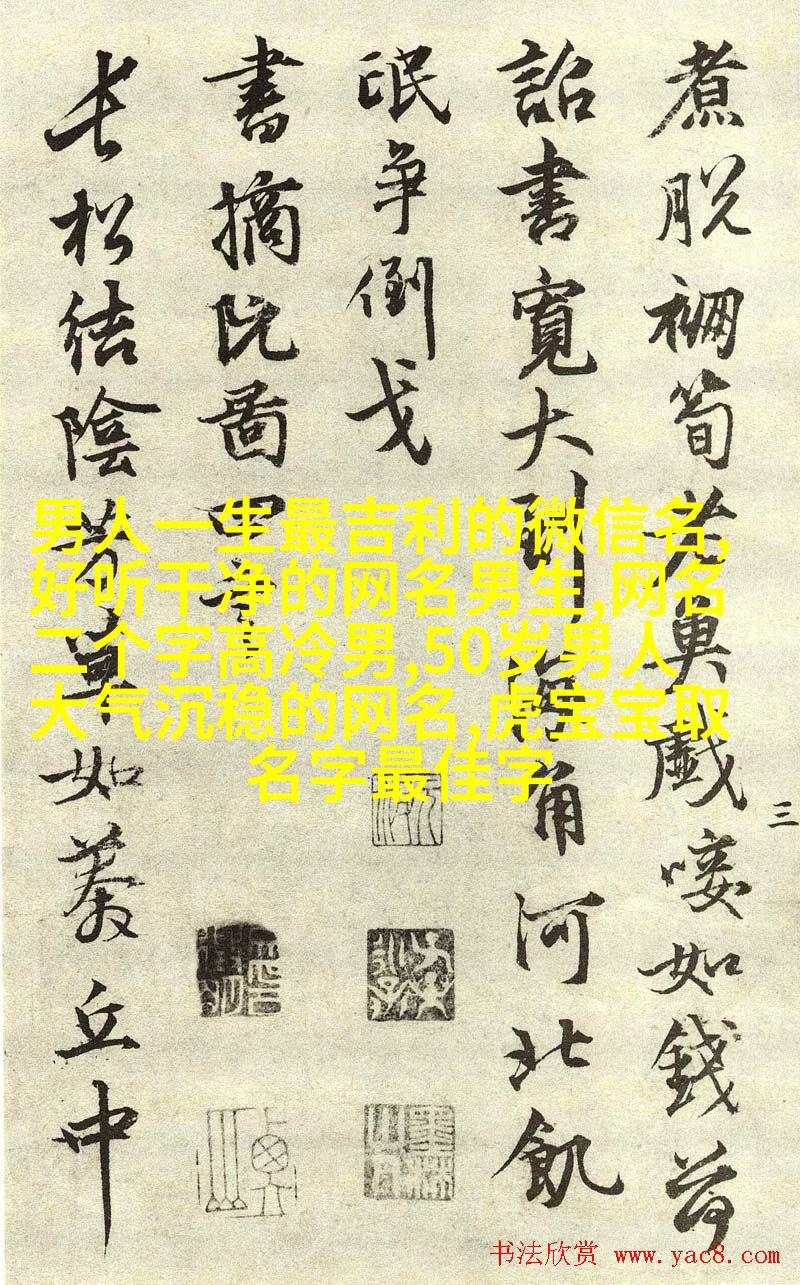 煮脫筍老魚戲唼如錢荷
詔書寬大到海角河北飢
氓爭倒戈
書摘阮圖四首
長松結陰芳草如綦丘中
三
男人一生最吉利的微信名,
好听干净的网名男生,网名
二个字高冷男,50岁男人
大气沉稳的网名,虎宝宝取
名字最佳字
书法欣赏 www.yac8.com